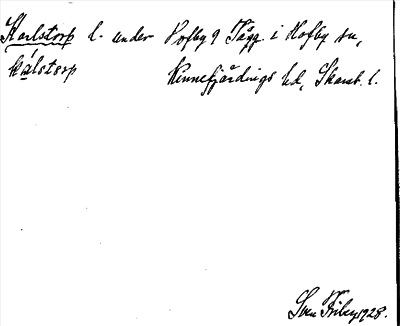 Karlstorp l. under Hofby 9 Tägg. i Hofby sn,
kálstorp Kinnefjärdings hd, Skarab. l.
Sven Friberg 1928.